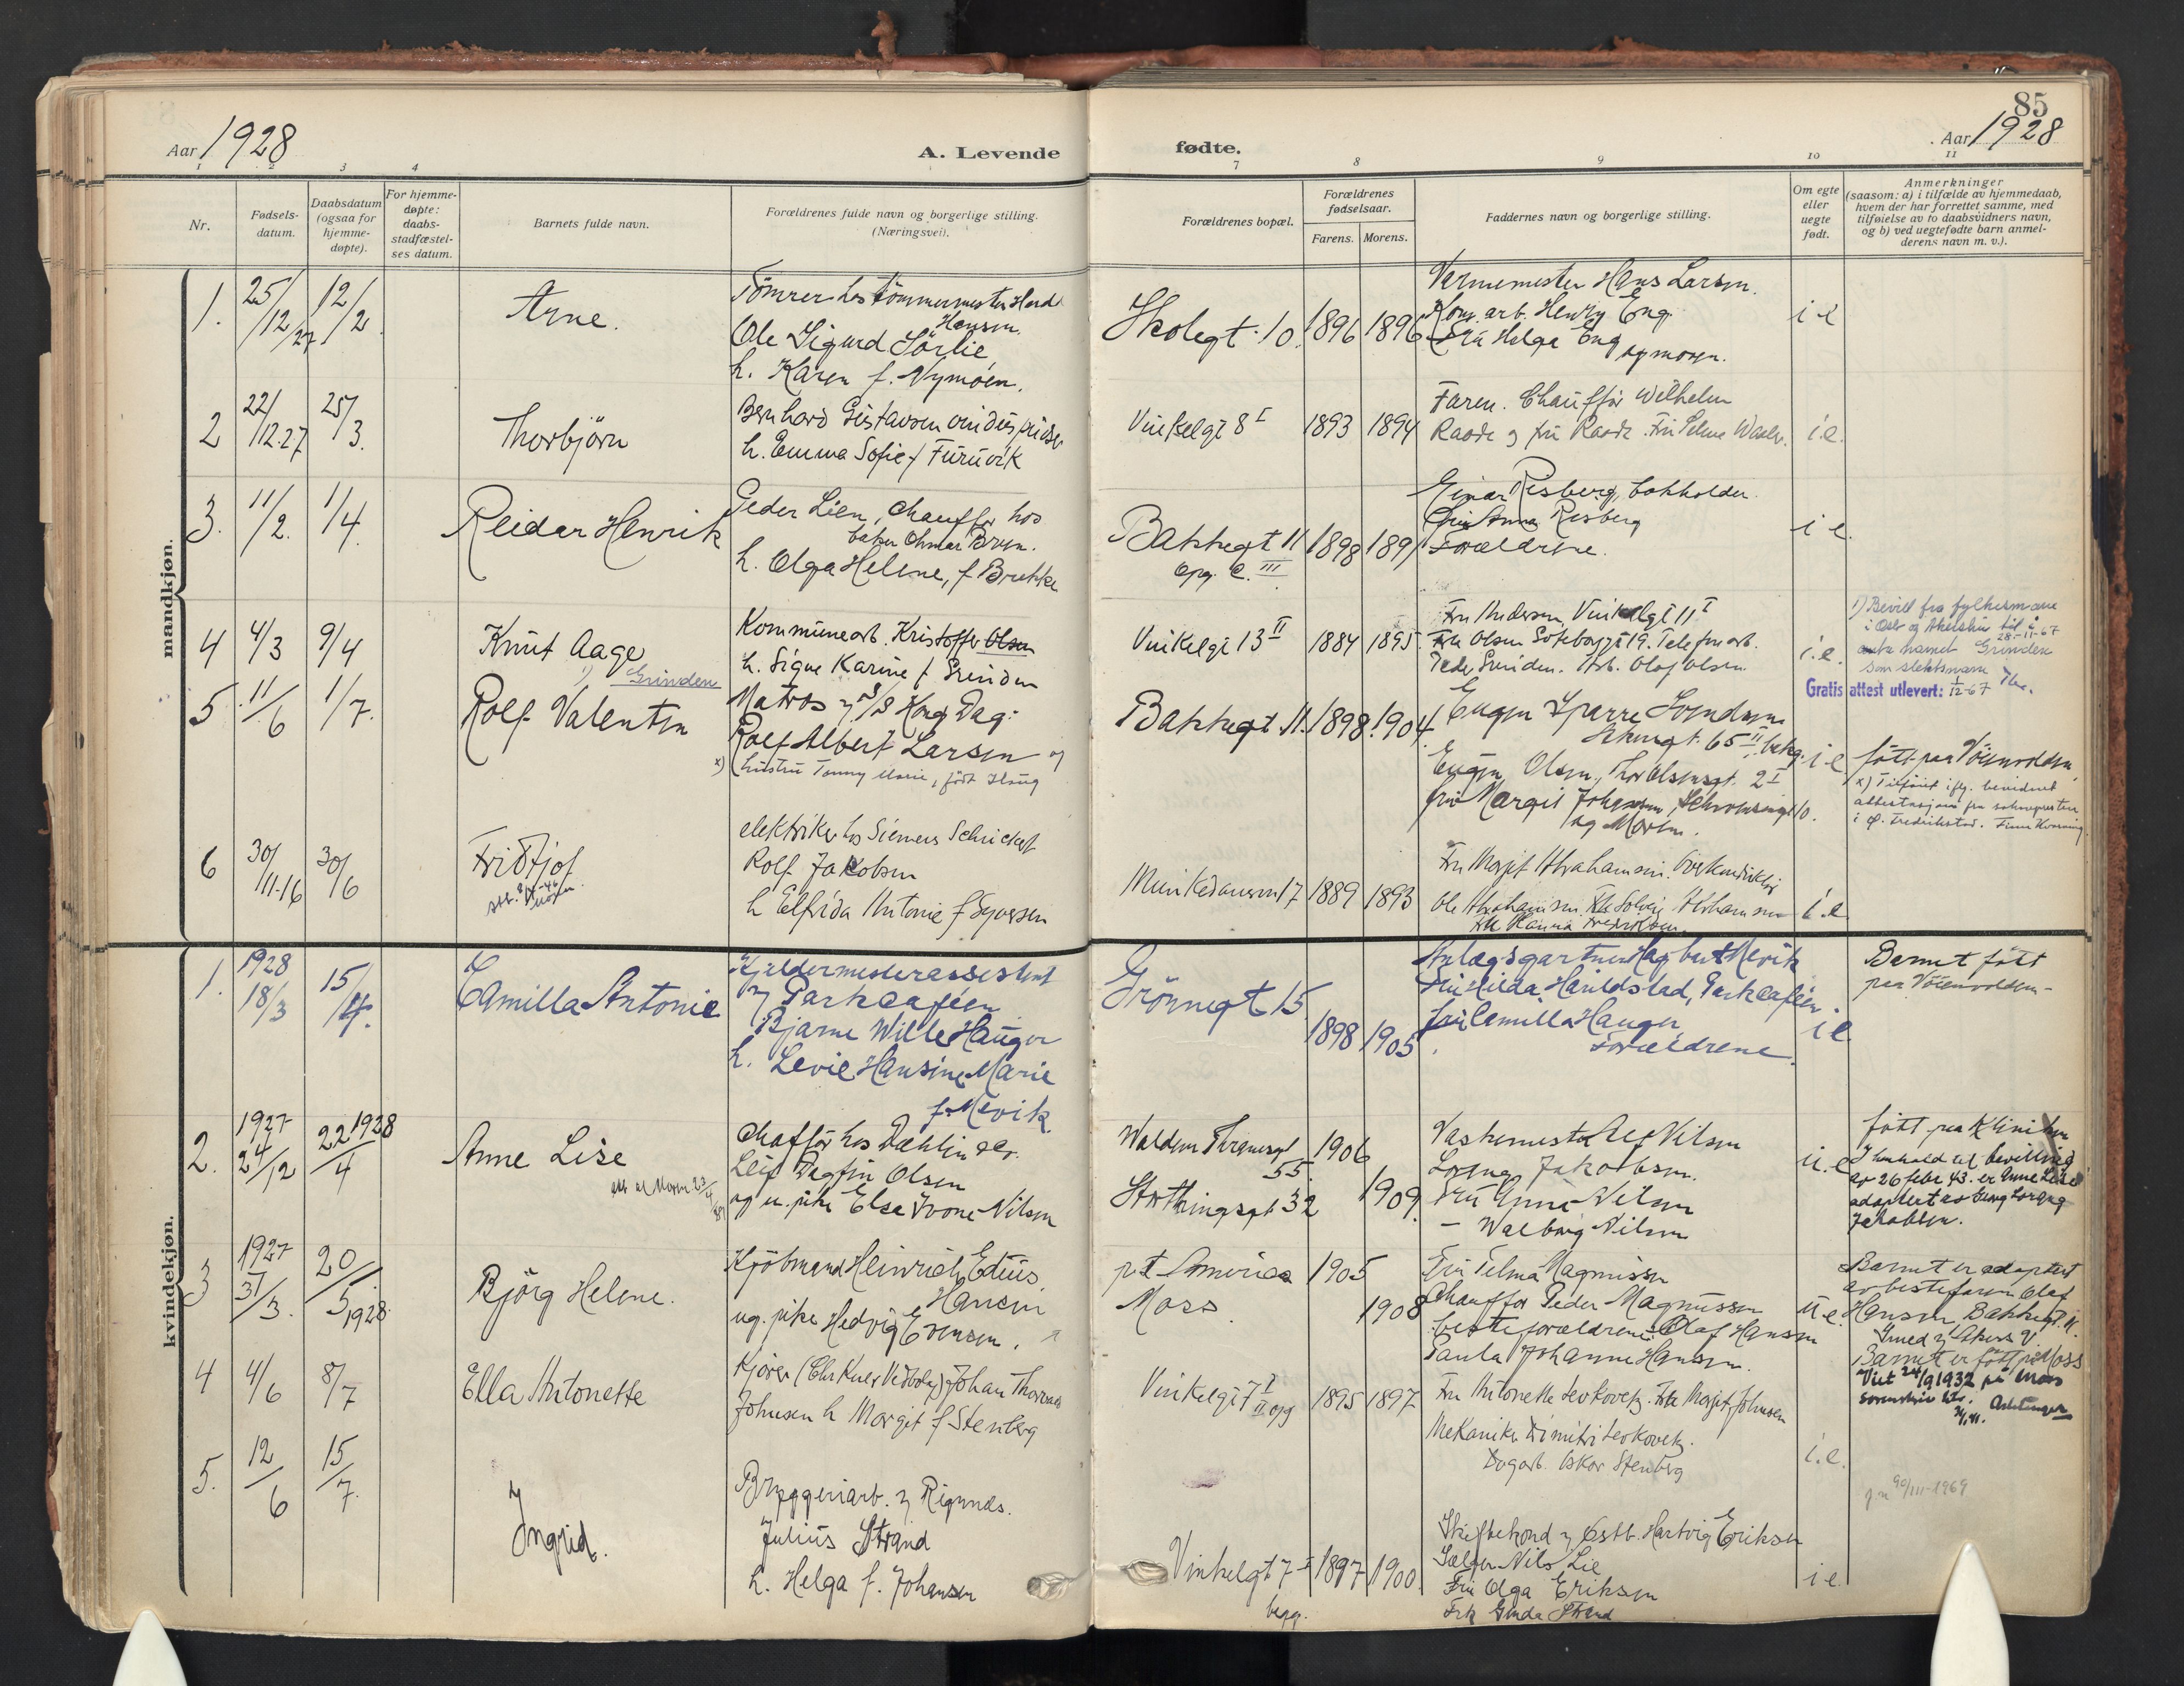 85
Aar 1928
A. Levende
fødte.
Aar 1928
1 2 3 4
7 8 9 10 11
Nr.
Fødsels-
datum.
Daabsdatum
(ogsaa for
hjemme-
døpte).
For hjemme-
døpte:
daabs-
stadfæstel-
ses datum.
Barnets fulde navn.
Forældrenes fulde navn og borgerlige stilling.
(Næringsvei).
Forældrenes bopæl.
Forældrenes
fødselsaar.
Farens. Morens.
Faddernes navn og borgerlige stilling.
Om egte
eller
uegte
født.
Anmerkninger
(saasom: a) i tilfælde av hjemmedaab,
hvem der har forrettet samme, med
tilføielse av to daabsvidners navn,
og b) ved uegtefødte barn anmel-
derens navn m. v.).
mandkjøn.
1. 25/12/27 12/2
Arne.
Tömrer hos tömmermester
Hansen.
Ole Sigurd Sörlie
h. Karen f. Nymoen.
Skolegt. 10. 1896 1896
Hans Larsen.
arb. Henry Eng
Fru Helga Eng
og moren.
i e
2 22/12.27 25/3.
Thorbjörn
Bernhard Gustavsen
h. Emma Sofie f Furuvik
Vinkelgt 8 I 1893 1894
Faren. Chauffør Wilhelm
Raade og fru Raade. Fru
i.e.
3. 11/2. 1/4.
Reidar Henrik
Peder Lien, Chauffør hos
baker
h. Olga Helene, f.
Bakkegt 11
opg. C. III
1898 1891
Einar Risberg, bokholder.
Fru Anna Risberg
Forældrene.
i e.
4 4/3 9/4
Knut Aage
1) Grinden
Kommunearb. Kristoffer Olsen
h. Signe Karine f Grinden
Vinkelgt 13 II 1884 1895.
Fru Andersen, Vinkelgt 11 I
Fru Olsen Göteborggt 19. Telefonarb.
Peder Grinden. Arb. Olaf Olsen.
i.e.
1) Bevill fra fylkesmann
i Oslo og Akershus til å
28-11-67
anta namet Grinden
som slektsnamn
Gratis attest utlevert: 1/12-67
5 11/6 1/7.
Rolf Valentin
Matros D/S Kong Dag:
Rolf Albert Larsen og
x) hustru Tonny Marie, født Haug
Bakkegt 11. 1898. 1904.
Eugen Sparre Svendsen
65 II
Eugen Olsen, Thor Olsensgt. 2 I
fru Margit Johansen, 10.
og Moren.
i e
født paa Vöienvolden
x) Tilføiet iflg. bevidnet
attestasjon fra sokneprestem
i Fredrikstad.
6 30/11-16 30/6
Fridtjof
elektriker hos Siemens Schuckert
Rolf Jakobsen
h Elfrida Antonie f Syversen
Munkedamsvn 17 1889 1893
Fru Margit Abrahamsen.
Ole Abrahamsen. Frk Solveig Abrahamsen
Frk Hanna Fredriksen.
i.e
kvindekjøn.
1. 1928 18/3 15/4.
Camilla Antonie
Kjeldermesterassistent
Parkcaféen
Bjarne Wille Hauger
h. Levie Hansine Marie
f. Mevik.
Grönnegt 15.
1898 1905.
Anlægsgartner Hagbart Mevik
Fru Hilda Hauldstad, Parkcaféen
fru Camilla Hauger
Forældrene.
i e
Barnet født
paa Vöienvolden-
2. 1927 24/12 22/4 1928
Anne Lise
Chafför hos Dæhlin
Leif Dagfin Olsen
og u. pike Else Ivone Nilsen
Waldem Thranesgt
55.
32
1906
1909.
Vaskemester Alf Nilsen
Lorang Jakobsen.
Fru Anna Nilsen
— Walborg Nilsen
u.e
født paa Kliniken
I henhold til bevilling
av 26 febr. 43. er Anne Lise
adoptert av Georg Lorang
Jakobsen.
3 1927 31/3. 20/5 1928.
Björg Helene.
Kjöbmand Heinrich Edius
Hansen
ug. pike Hedvig Evensen.
pt America 1905
Moss. 1908
Fru Telma Magnussen
Chauffør Peder Magnussen
besteforældrene: Olaf Hansen
Paula Johanne Hansen.
u.e.
Barnet er adoptert
av bestefaren Olaf
Hansen Bakkegt. 11.
Barnet er født i Moss
Viet 24/9 1932 på Moss
4 4/6 8/7
Ella Antonette
Kjörer Johan Thorvald
Johnsen h Margit f Stenberg
Vinkelgt 7 I
II opg
1895 1897
Fru Antonette Leokovetz. Frk Margit Johnsen
Mekaniker Dimitri Leokovetz.
Dagarb. Oskar Stenberg
i.e.
5. 12/6 15/7.
Ingrid.
Bryggeriarb. Ringnes.
Julius Strand
h. Helga f. Johansen
Vinkelgt 7 I 1897 1900
Hartvig Eriksen
Selger Nils Lie
Fru Olga Eriksen
Frk Gunda Strand
i e.